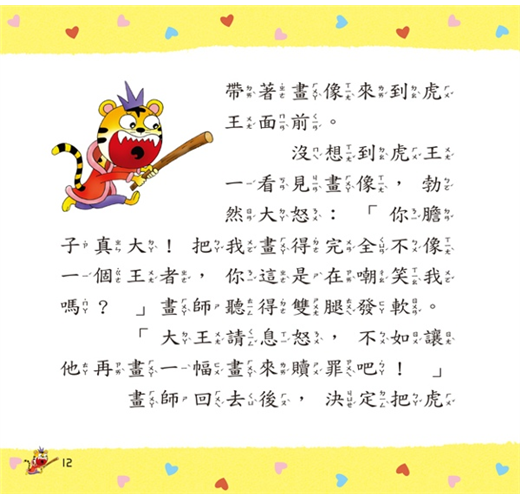 帶著畫像來到虎
王面前。
沒想到虎王
一看見畫像，勃
然大怒：「你膽
子真大！把我畫得完全不像
一個王者，你這是在嘲笑我
嗎？」畫師聽得雙腿發軟。
「大王請息怒，不如讓
他再畫一幅畫來贖罪吧！」
畫師回去後，決定把虎
12